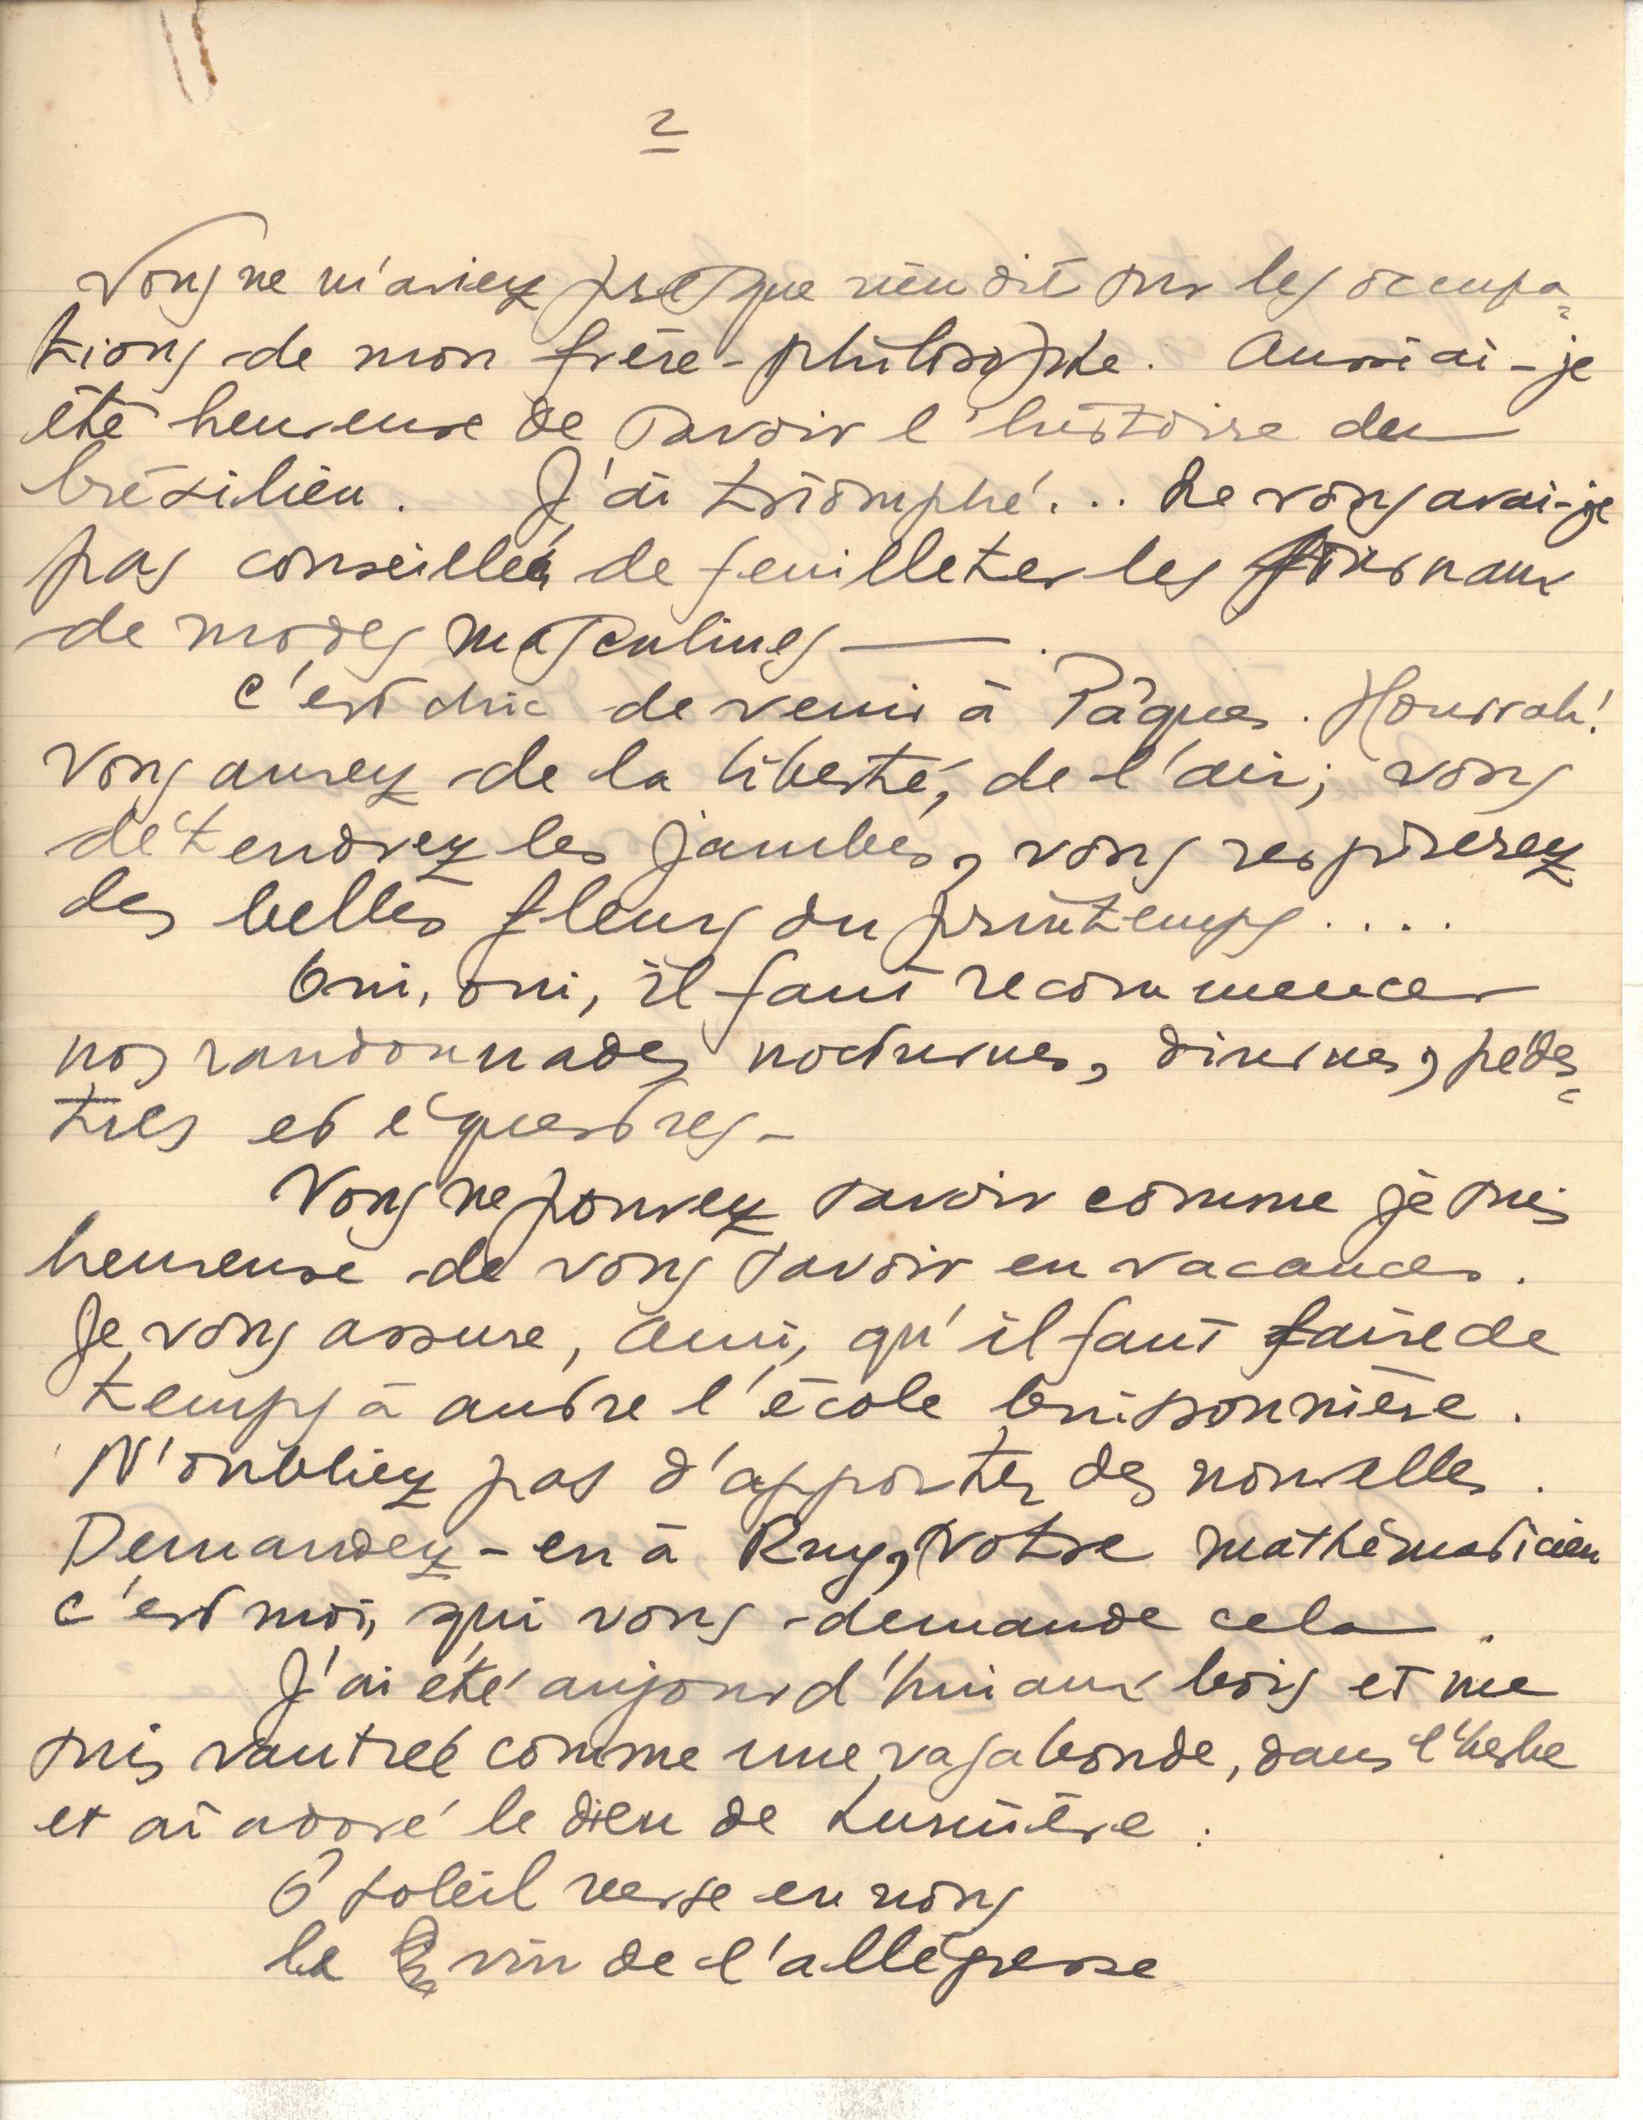 2
Vous ne m'aviez presque rien dit sur les occupa=
tions de mon frère-philosophe. Aussi ai-je
été heureuse de savoir l'histoire du
brésilien. J'ai triomphé... Ne vous avai-je
pas conseillé de feuilleter les journaux
de modes masculines —.
C'est chic de venir à Pâques. Hourrah!
Vous aurez de la liberté, de l'air; vous
détendrez les jambes, vous respirerez
des belles fleurs du printemps....
Oui, oui, il faut recommencer
nos randonnades nocturnes, diurnes, pédes=
tres et équestres -
Vous ne pouvez savoir comme je suis
heureuse de vous savoir en vacances.
Je vous assure, ami, qu'il faut faire de
temps à autre l'école buissonnière.
N'oubliez pas d'apporter des nouvelles.
Demandez-en à Ruy, votre mathématicien
c'est moi, qui vous demande cela.
J'ai été aujourd'hui aux bois et me
suis vautrée comme une vagabonde, dans l'herbe
et ai adoré le dieu de Lumière.
Ô soleil verse en nous
le vin de l'allégresse